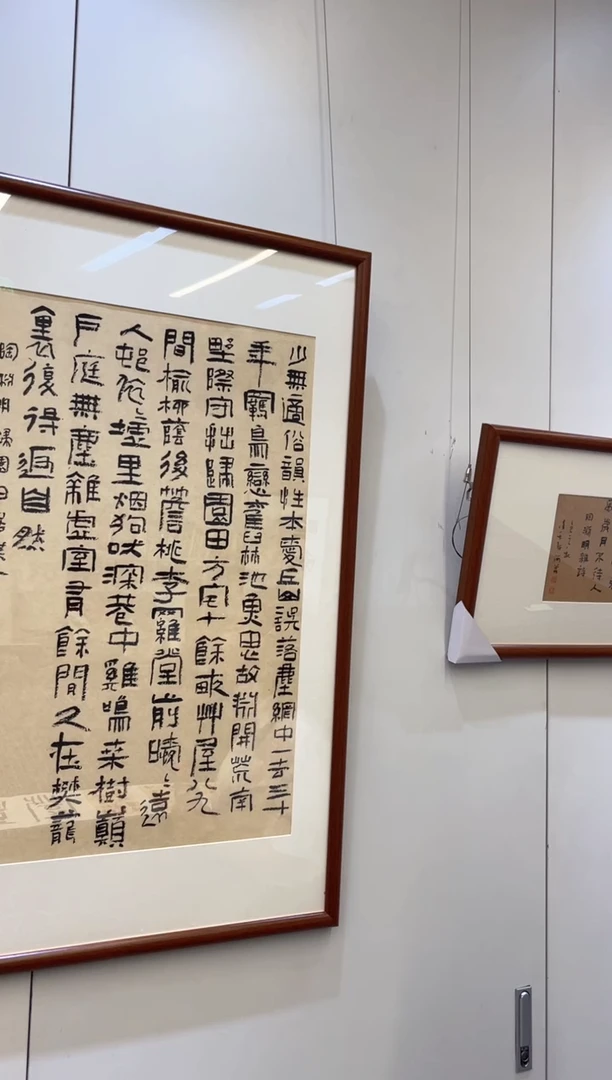 少無適俗韻性本愛丘山誤落塵網中一去三十
年羈鳥戀舊林池魚思故淵開荒南
埜際守拙歸園田方宅十餘畝艸屋八九
間榆柳蔭後簷桃李羅堂前曖〻遠
人邨依〻墟里烟狗吠深巷中雞鳴桒樹顛
戶庭無塵雜虛室有餘閒久在樊籠
裏復得返自然
陶淵明歸園田居其一
歲月不待人
陶淵明雜詩